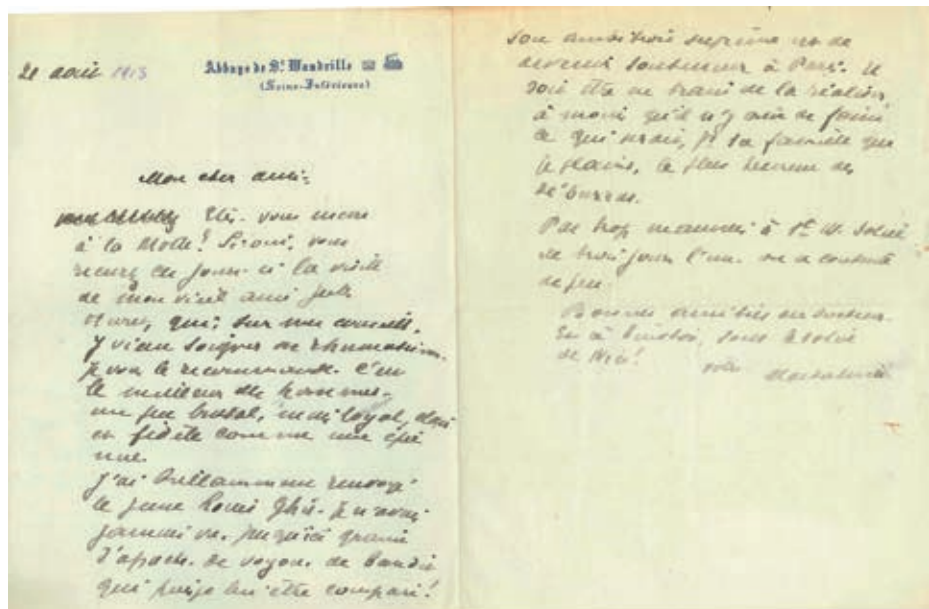 21 août 1913
Abbaye de St. Wandrille
(Seine-Inférieure)
Mon cher ami,
Etes-vous encore
à la Motte? Si oui, vous
recevrez ces jours-ci la visite
de mon vieil ami Jules
qui, sur mes conseils,
y vient soigner des rhumatismes.
Je vous le recommande. C'est
le meilleur des hommes.
un peu brutal, mais loyal,
et fidèle comme une épée
nue.
J'ai brillamment renvoyé
le jeune Louis
jamais vu jusqu'ici graine
d'apache, de voyou, de bandit
qui puisse lui être comparé!
son ambition suprême est de
devenir souteneur à Paris. Il
doit être en train de la réaliser,
à moins qu'il n'y ait de
ce qui serait, pr sa famille que
je plains, le plus heureux des
débarras.
Pas trop mauvais à St W. Soleil
de trois jours l'un. on se contente
de peu.
Bonnes amitiés
de Nice!
votre